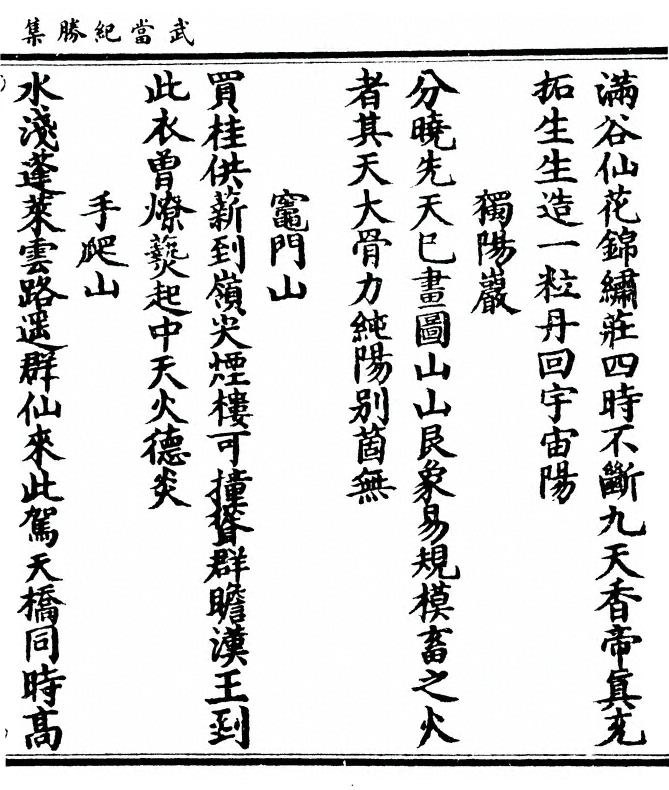 武當紀勝集
滿谷仙花錦繡莊四時不斷九天香帝真充
拓生生造一粒丹回宇宙陽
獨陽巖
分曉先天已畫圖山山艮象易規模畜之火
者其天大骨力純陽別箇無
竈門山
買桂供薪到嶺尖煙樓可撞聳群瞻漢王到
此衣曾燎爇起中天火德炎
手爬山
水淺蓬萊雲路遥群仙來此駕天橋同時高